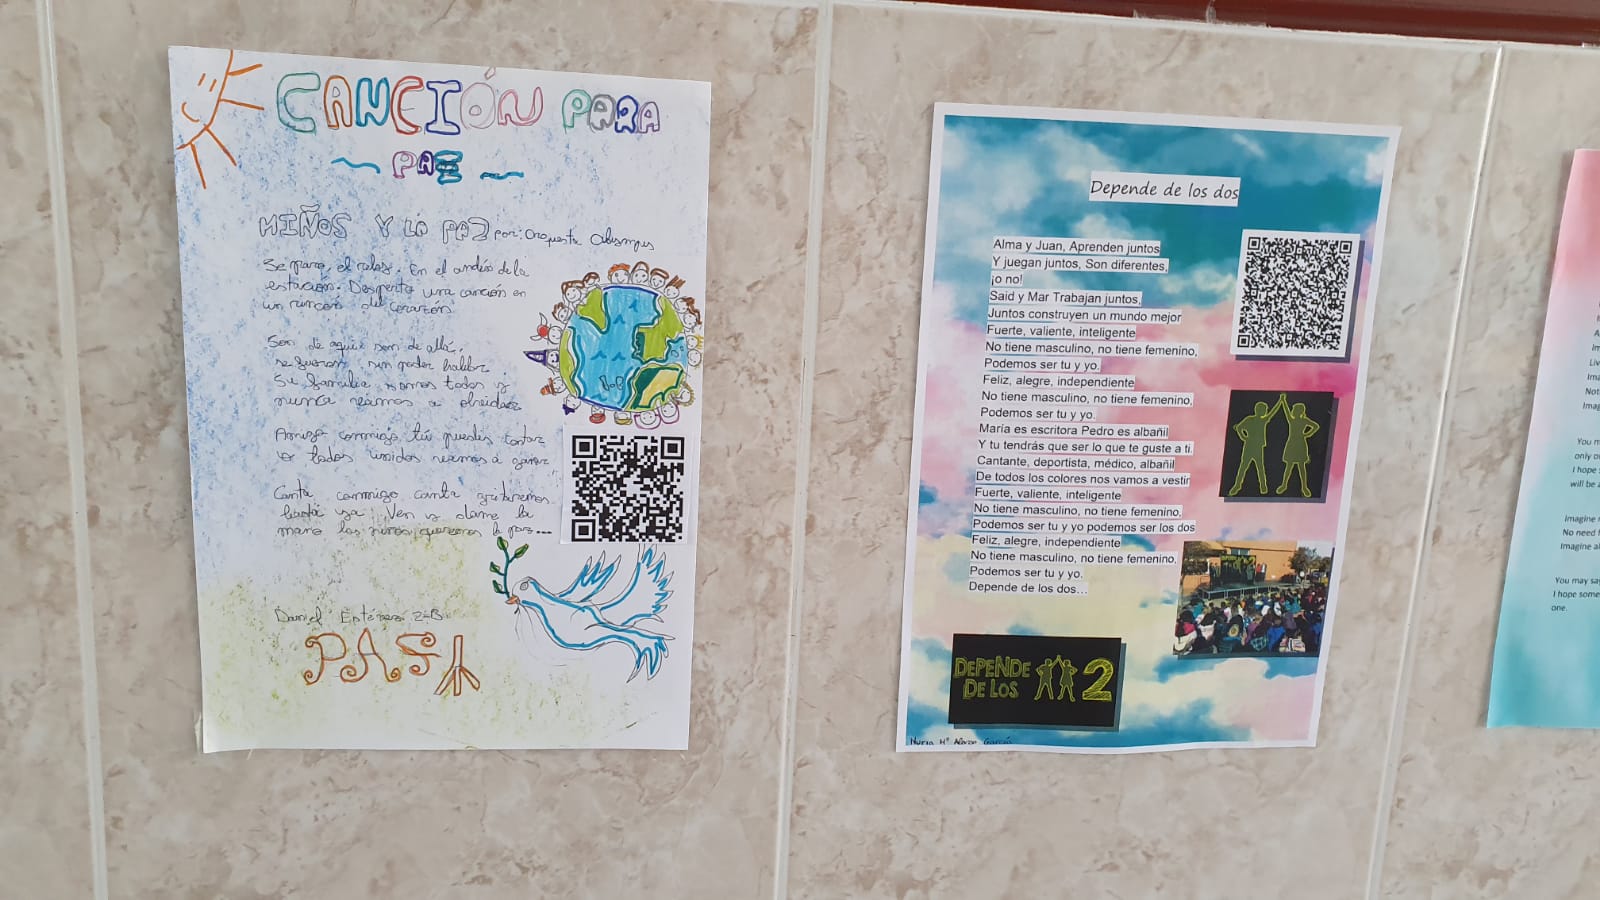 CANCIÓN PARA
PAZ
NIÑOS Y LA PAZ por: Orquesta
Se para, el reloj. En el andén de la
estación. Despierta una canción en
un rincón del corazón
Son de aquí e son de allá,
se buscan sin poder hablar
Su familia somos todos y
nunca vamos a olvidar
Amigo conmigo, tú puedes contar
todos unidos vamos a ganar
Canta conmigo canta gritaremos
hasta ya. Ven y dame la
mano los niños queremos la paz...
Daniel Estévez 2ºB
Depende de los dos
Alma y Juan, Aprenden juntos
Y juegan juntos, Son diferentes,
¡o no!
Said y Mar Trabajan juntos,
Juntos construyen un mundo mejor
Fuerte, valiente, inteligente
No tiene masculino, no tiene femenino,
Podemos ser tu y yo.
Feliz, alegre, independiente
No tiene masculino, no tiene femenino,
Podemos ser tu y yo.
María es escritora Pedro es albañil
Y tu tendrás que ser lo que te guste a ti.
Cantante, deportista, médico, albañil
De todos los colores nos vamos a vestir
Fuerte, valiente, inteligente
No tiene masculino, no tiene femenino,
Podemos ser tu y yo podemos ser los dos
Feliz, alegre, independiente
No tiene masculino, no tiene femenino,
Podemos ser tu y yo.
Depende de los dos...
DEPENDE
DE LOS 2
Nuria Mª García
You
only
I hope
will be
Imagine
No need
Imagine
You may say
I hope some
one.